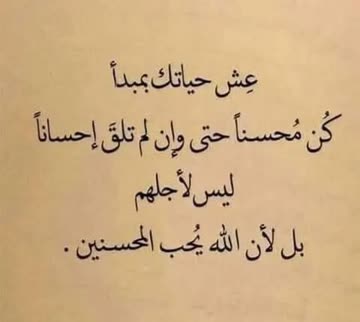 عِش حياتك بمبدأ
كُن مُحسناً حتى وإن لم تلقَ إحساناً
ليس لأجلهم
بل لأن الله يُحب المحسنين .